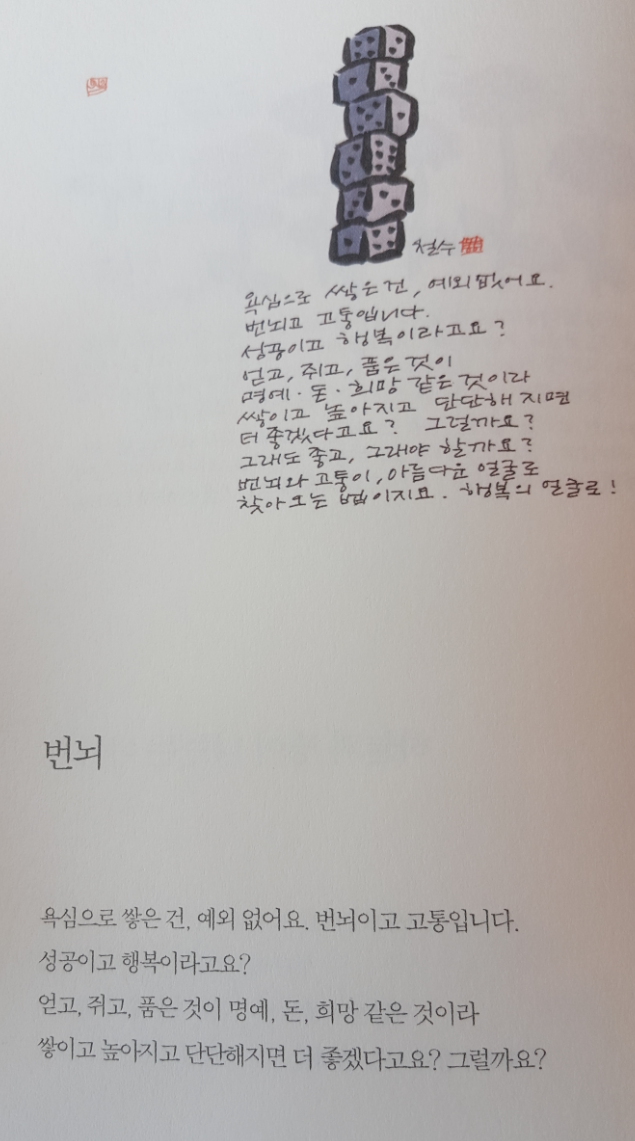 철수
욕심으로 쌓은 건, 예외 없어요.
번뇌고 고통입니다.
성공이고 행복이라고요?
얻고, 쥐고, 품은 것이
명예·돈·희망 같은 것이라
쌓이고 높아지고 단단해지면
더 좋겠다고요? 그럴까요?
그래도 좋고, 그래야 할까요?
번뇌와 고통이, 아름다운 얼굴로
찾아오는 법이지요. 행복의 얼굴로!
번뇌
욕심으로 쌓은 건, 예외 없어요. 번뇌이고 고통입니다.
성공이고 행복이라고요?
얻고, 쥐고, 품은 것이 명예, 돈, 희망 같은 것이라
쌓이고 높아지고 단단해지면 더 좋겠다고요? 그럴까요?